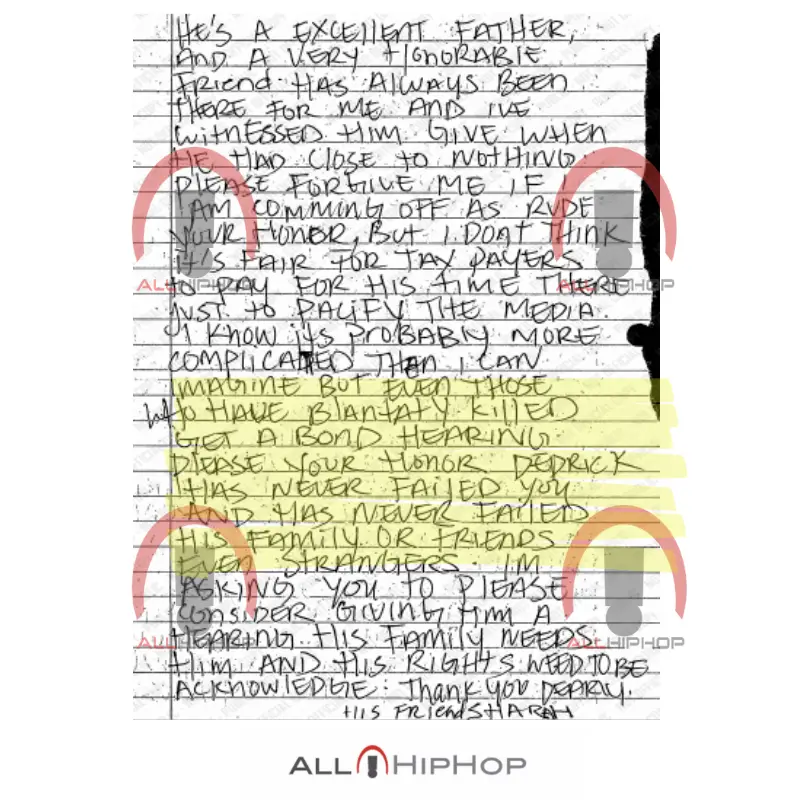 HE'S A EXCEllENT FATHER,
AND A VERY HONORABLE
FRiEnd HAS AlWAYS BEEN
THERE FOR ME AND I'VE
WITNESSED HIM GIVE WHEN
HE HAD CLOSE to NOTHING.
PLEASE FORGIVE ME IF I
AM COMMING OFF AS RUDE
YOUR HONOR, BUT I DONT THINK
IT'S FAIR FOR TAX PAYERS
to PAY FOR HIS TIME THERE
JUST to PACIFY THE MEDIA.
I KNOW ITS PROBABLY MORE
COMPLICATED THEN I CAN
IMAGINE BUT EVEN THOSE
to HAVE BLANTATY KILLED
GET A BOND HEARING.
PLEASE YOUR HONOR DEDRICK
HAS NEVER FAILED YOU
AND HAS NEVER FAILED
HIS FAMILY OR FRIENDS
EVEN STRANGERS. I'M
ASKING YOU TO PLEASE
CONSIDER GIVING HIM A
HEARING. HIS FAMILY NEEDS
HIM AND HIS RIGHTS NEED TO BE
ACKNOWLEDGE. THANK YOU DEARLY.
HIS FRIEND SHARAH
ALLHIPHOP
ALLHIPHOP
ALLHIPHOP
ALLHIPHOP
ALLHIPHOP